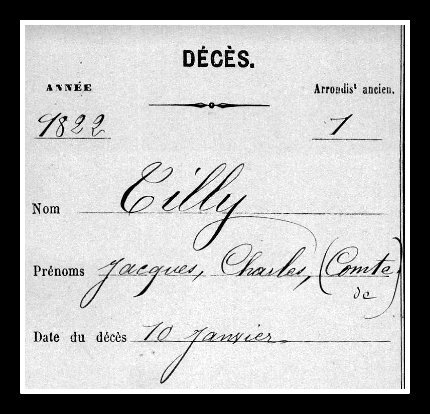 DÉCÈS.
ANNÉE Arrondist ancien.
1822 1
Nom Tilly
Prénoms Jacques, Charles, (Comte de)
Date du décès 10 Janvier